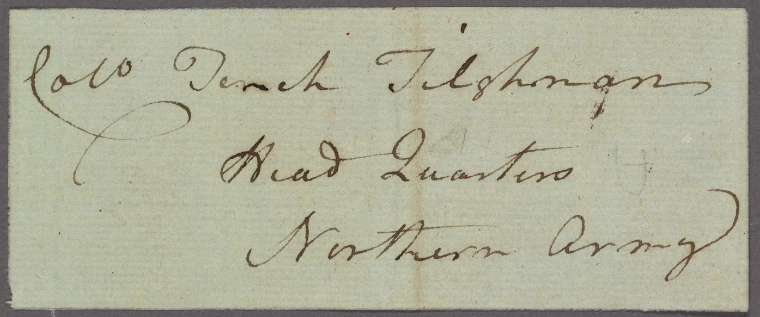 Colo Tench Tilghman
Head Quarters
Northern Army